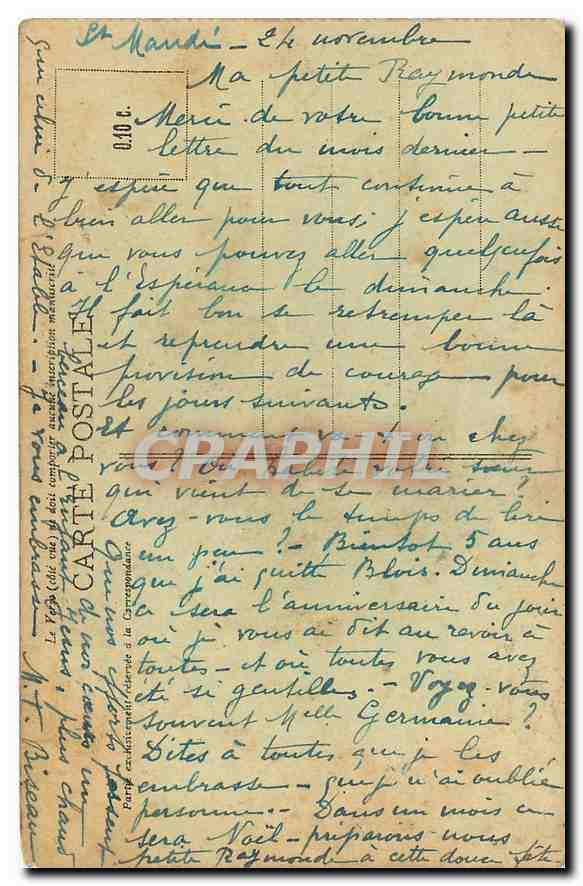 St Mandé - 24 novembre
Ma petite Raymonde
Merci de votre bonne petite
lettre du mois dernier -
J'espère que tout continue à
bien aller pour vous; j'espère aussi
que vous pouvez aller quelquefois
à l'Espérance le dimanche.
Il fait bon se retremper là
et reprendre une bonne
provision de courage pour
les jours suivants.
Et comment va-t-on chez
vous? Où habite votre sœur
qui vient de se marier?
Avez-vous le temps de lire
un peu? - Bientôt 5 ans
que j'ai quitté Blois. Dimanche
ce sera l'anniversaire du jour
où je vous ai dit au revoir à
toutes - et où toutes vous avez
été si gentilles. - Voyez-vous
souvent Melle Germaine?
Dites à toutes que je les
embrasse - que je n'ai oublié
personne. - Dans un mois ce
sera Noël - préparons-nous
petite Raymonde à cette douce fête
Que nos efforts fassent
de nos cœurs un
berceau à l'Enfant Jésus, plus chaud
que celui de l'Etable. - Je vous embrasse
M. T. Biseau
0.10 c.
CARTE POSTALE
Partie exclusivement réservée à la Correspondance
CPAPHIL